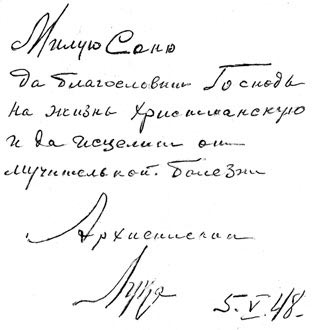 Милую Саню
да благословит Господь
на жизнь христианскую
и да исцелит от
мучительной болезни
Архиепископ
Лука 5.V.48.